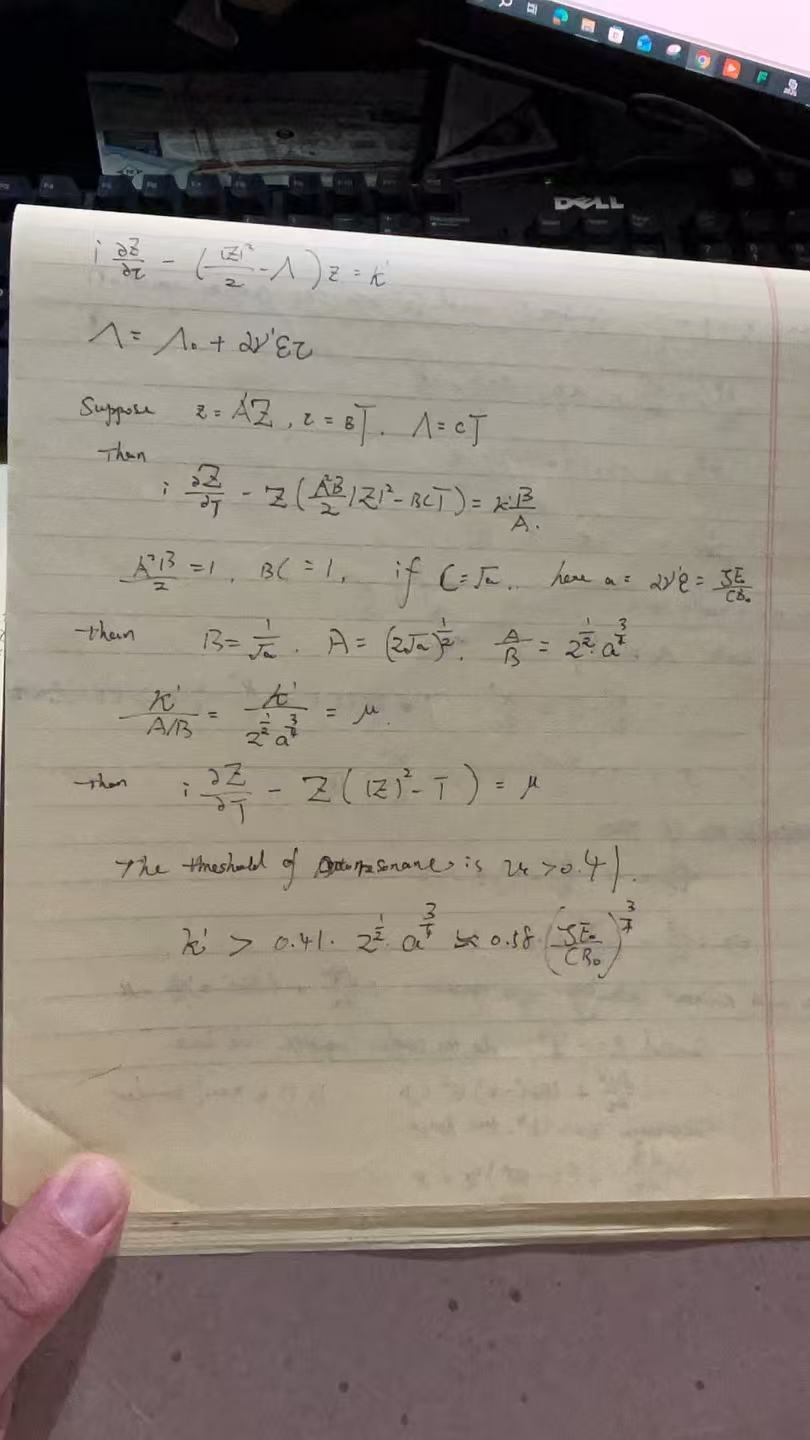 DELL
i ∂Z/∂τ - (|Z|²/2 - Λ) z = k'
Λ = Λ₀ + 2ν'ετ
Suppose z = AZ, τ = BT. Λ = CT
Then
i ∂Z/∂T - Z (A²B/2 |Z|² - BCT) = k' B/A.
A²B/2 = 1, BC = 1, if C = √a.. here a = 2ν'ε = ζE₀/CB₀
then B = 1/√a. A = (2√a)^½. A/B = 2^½ a^¾.
k'/A/B = k'/2^½ a^¾ = μ.
then i ∂Z/∂T - Z (|Z|² - T) = μ
The threshold of autoresonance is > 0.41.
k' > 0.41. 2^½ a^¾ ≈ 0.58 (ζE₀/CB₀)^¾